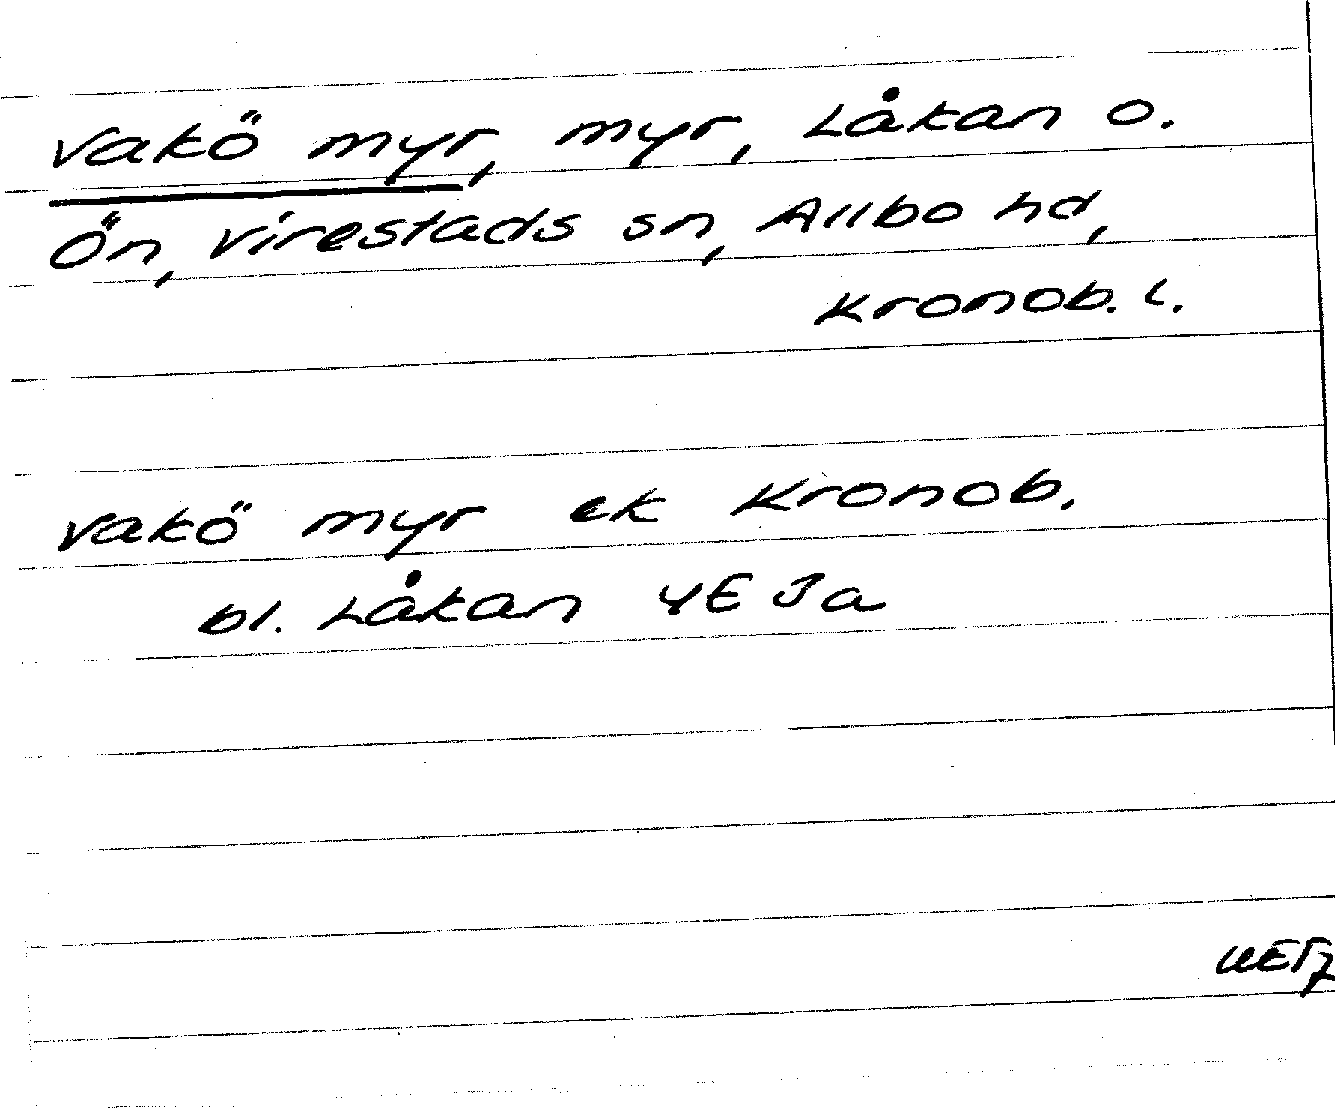 Vakö myr, myr, Låkan o.
Ön, Virestads sn, Allbo hd,
Kronob. l.
Vakö myr ek Kronob.
bl. Låkan 4E Ja